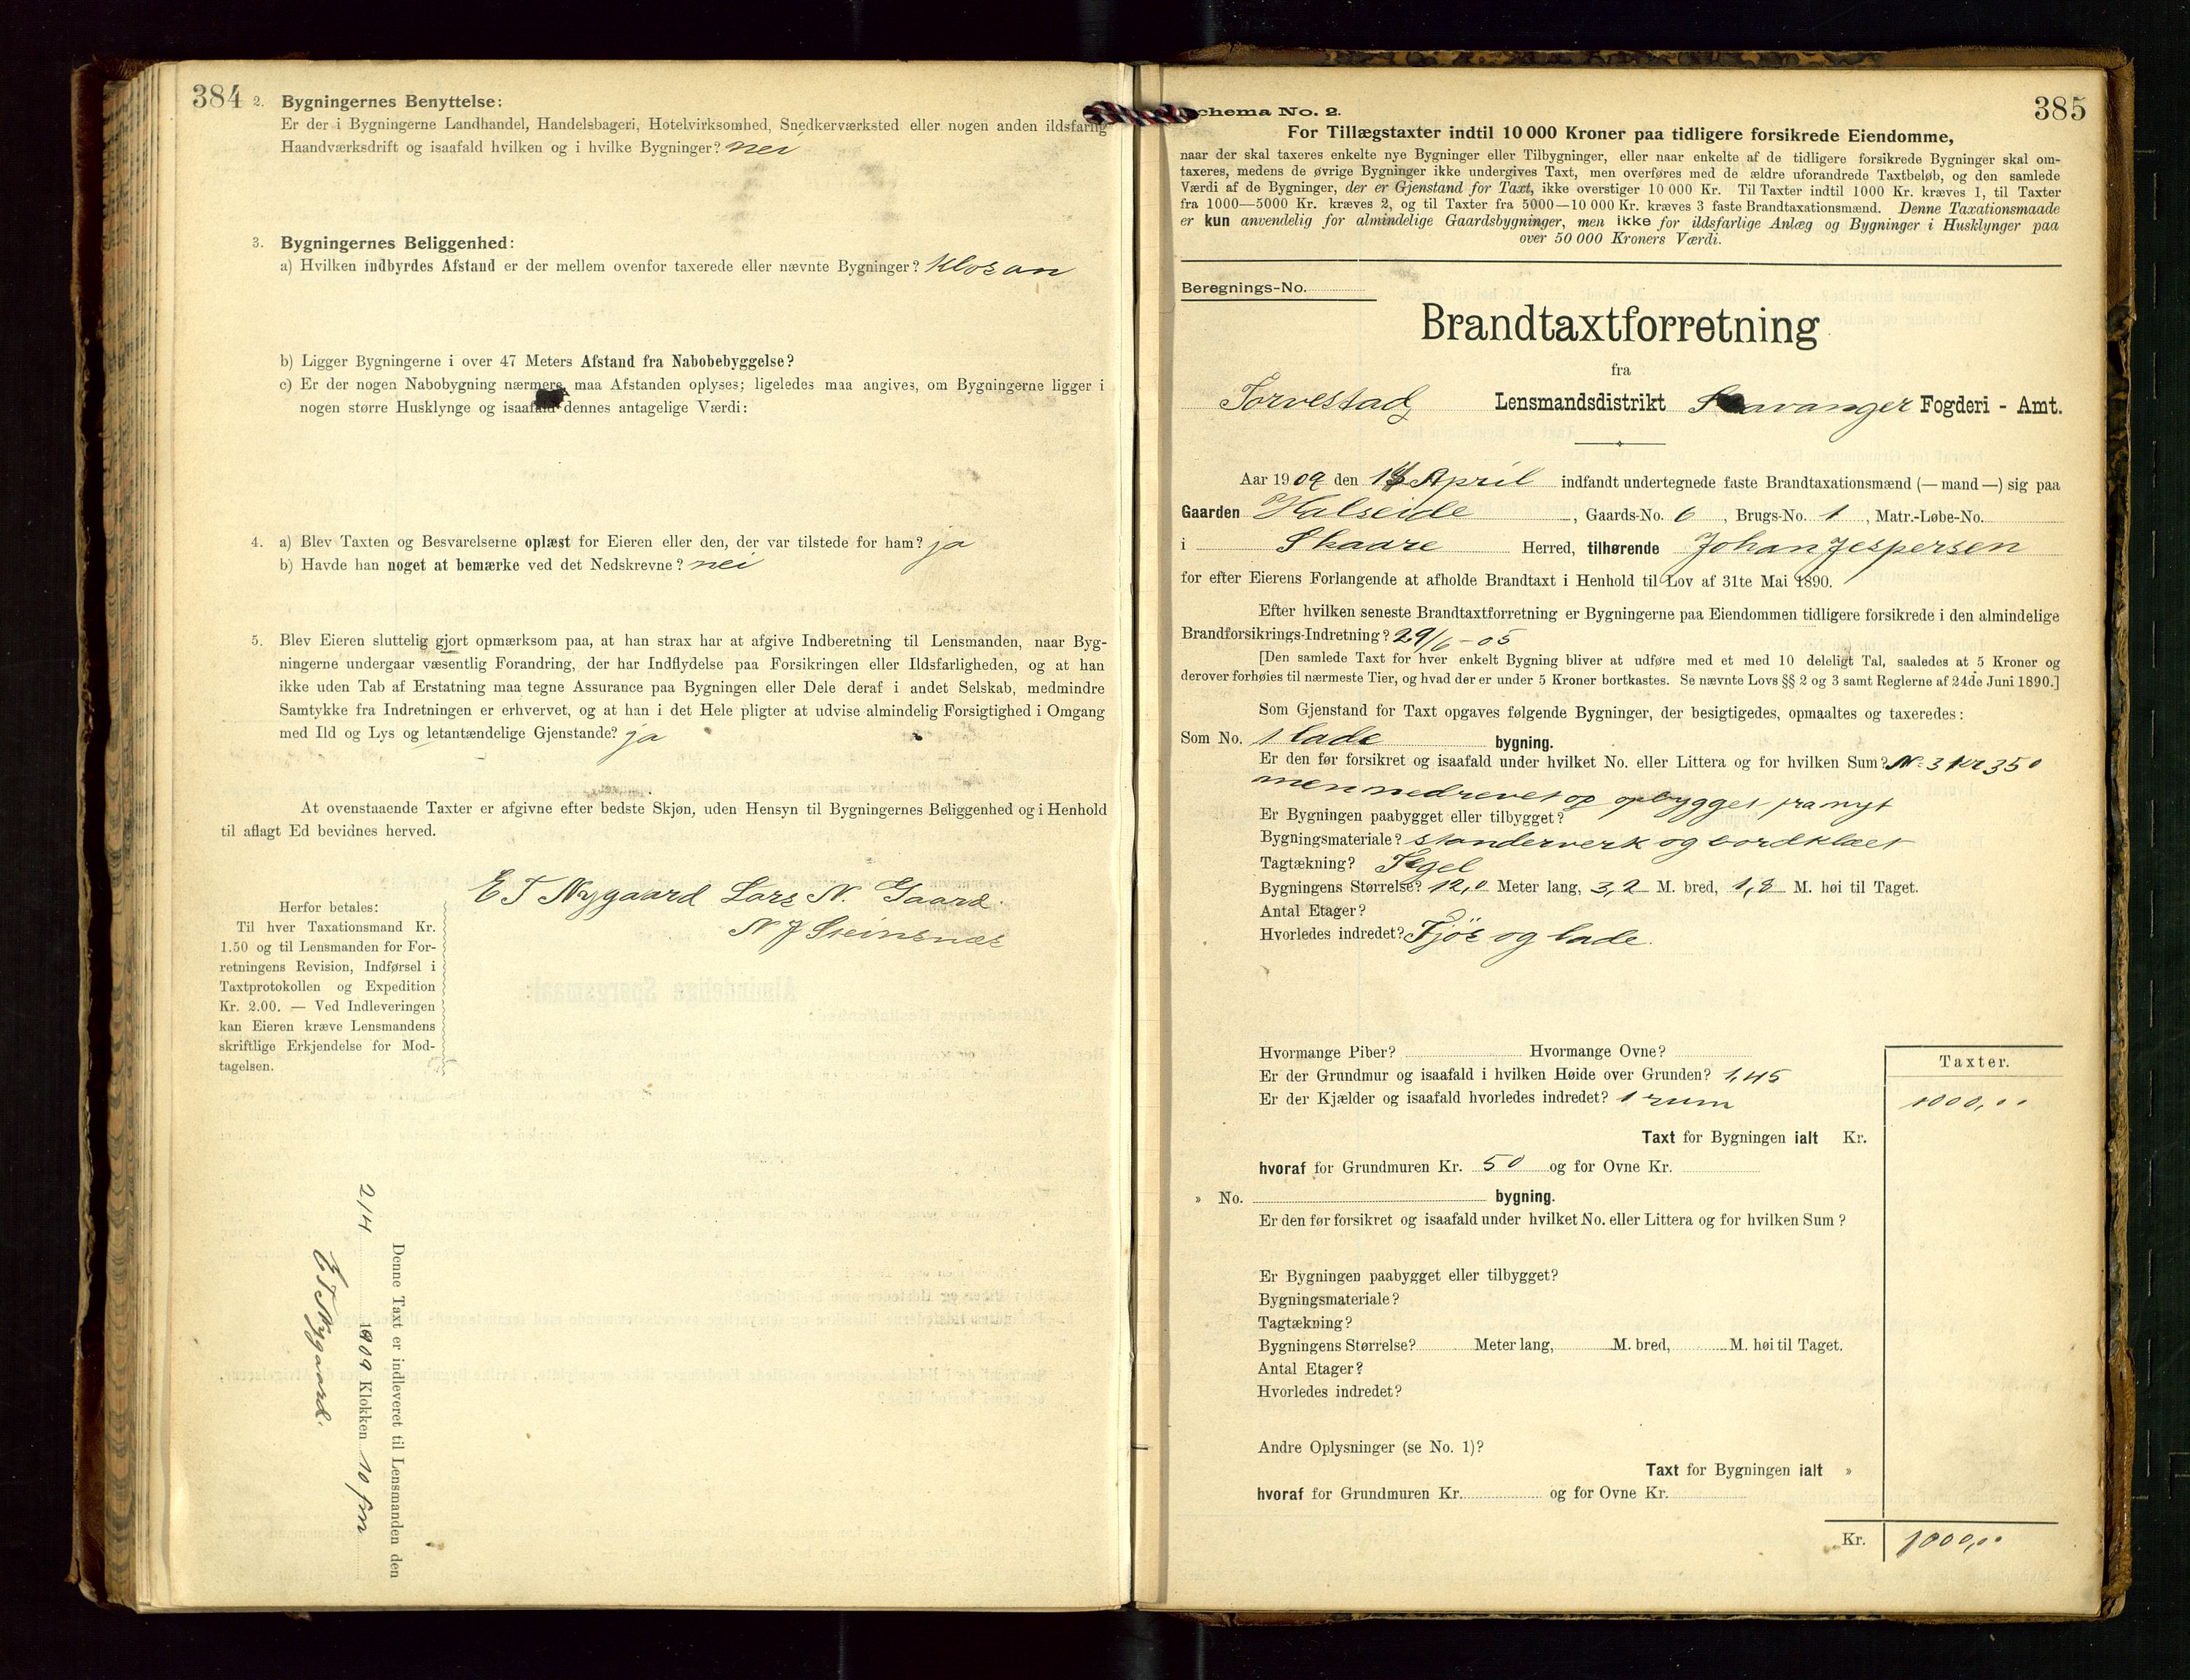 384
2. Bygningernes Benyttelse:
Er der i Bygningerne Landhandel, Handelsbageri, Hotelvirksomhed, Snedkerværksted eller nogen anden ildsfarlig
Haandværksdrift og isaafald hvilken og i hvilke Bygninger? nei
3. Bygningernes Beliggenhed:
a) Hvilken indbyrdes Afstand er der mellem ovenfor taxerede eller nævnte Bygninger? klos an
b) Ligger Bygningerne i over 47 Meters Afstand fra Nabobebyggelse?
c) Er der nogen Nabobygning nærmere, maa Afstanden oplyses; ligeledes maa angives, om Bygningerne ligger i
nogen større Husklynge og isaafald dennes antagelige Værdi:
4. a) Blev Taxten og Besvarelserne oplæst for Eieren eller den, der var tilstede for ham? ja
b) Havde han noget at bemærke ved det Nedskrevne? nei
5. Blev Eieren sluttelig gjort opmærksom paa, at han strax har at afgive Indberetning til Lensmanden, naar Byg-
ningerne undergaar væsentlig Forandring, der har Indflydelse paa Forsikringen eller Ildsfarligheden, og at han
ikke uden Tab af Erstatning maa tegne Assurance paa Bygningen eller Dele deraf i andet Selskab, medmindre
Samtykke fra Indretningen er erhvervet, og at han i det Hele pligter at udvise almindelig Forsigtighed i Omgang
med Ild og Lys og letantændelige Gjenstande? ja
At ovenstaaende Taxter er afgivne efter bedste Skjøn, uden Hensyn til Bygningernes Beliggenhed og i Henhold
til aflagt Ed bevidnes herved.
E T Nygaard Lars N. Gaard.
N J Steinsnes
Herfor betales:
Til hver Taxationsmand Kr.
1.50 og til Lensmanden for For-
retningens Revision, Indførsel i
Taxtprotokollen og Expedition
Kr. 2.00. — Ved Indleveringen
kan Eieren kræve Lensmandens
skriftlige Erkjendelse for Mod-
tagelsen.
Denne Taxt er indleveret til Lensmanden den
21/4 1909 Klokken 10 fm
E T Nygaard.
385
Schema No. 2.
For Tillægstaxter indtil 10 000 Kroner paa tidligere forsikrede Eiendomme,
naar der skal taxeres enkelte nye Bygninger eller Tilbygninger, eller naar enkelte af de tidligere forsikrede Bygninger skal om-
taxeres, medens de øvrige Bygninger ikke undergives Taxt, men overføres med de ældre uforandrede Taxtbeløb, og den samlede
Værdi af de Bygninger, der er Gjenstand for Taxt, ikke overstiger 10 000 Kr. Til Taxter indtil 1000 Kr. kræves 1, til Taxter
fra 1000—5000 Kr. kræves 2, og til Taxter fra 5000—10 000 Kr. kræves 3 faste Brandtaxationsmænd. Denne Taxationsmaade
er kun anvendelig for almindelige Gaardsbygninger, men ikke for ildsfarlige Anlæg og Bygninger i Husklynger paa
over 50 000 Kroners Værdi.
Beregnings-No.
Brandtaxtforretning
fra
Torvestad Lensmandsdistrikt Stavanger Fogderi - Amt.
Aar 1909 den April indfandt undertegnede faste Brandtaxationsmænd (— mand —) sig paa
Gaarden Kalseide, Gaards-No. 6, Brugs-No. 1, Matr.-Løbe-No.
i Skaare Herred, tilhørende Johan Jespersen
for efter Eierens Forlangende at afholde Brandtaxt i Henhold til Lov af 31te Mai 1890.
Efter hvilken seneste Brandtaxtforretning er Bygningerne paa Eiendommen tidligere forsikrede i den almindelige
Brandforsikrings-Indretning? 29/6 - 05
[Den samlede Taxt for hver enkelt Bygning bliver at udføre med et med 10 deleligt Tal, saaledes at 5 Kroner og
derover forhøies til nærmeste Tier, og hvad der er under 5 Kroner bortkastes. Se nævnte Lovs §§ 2 og 3 samt Reglerne af 24de Juni 1890.]
Som Gjenstand for Taxt opgaves følgende Bygninger, der besigtigedes, opmaaltes og taxeredes:
Som No. 1 lade bygning.
Er den før forsikret og isaafald under hvilket No. eller Littera og for hvilken Sum? No 3 kr 350
men nedrevet og opbygget fra nyt
Er Bygningen paabygget eller tilbygget?
Bygningsmateriale? standerverk og bordklæt
Tagtækning? Tegel
Bygningens Størrelse? 12,0 Meter lang, 3,2 M. bred, 1,8 M. høi til Taget.
Antal Etager?
Hvorledes indredet? Fjøs og lade.
Hvormange Piber? Hvormange Ovne?
Taxter.
Er der Grundmur og isaafald i hvilken Høide over Grunden? 1,45
Er der Kjælder og isaafald hvorledes indredet? 1 rum 1000,00
Taxt for Bygningen ialt Kr.
hvoraf for Grundmuren Kr. 50 og for Ovne Kr.
» No. bygning.
Er den før forsikret og isaafald under hvilket No. eller Littera og for hvilken Sum?
Er Bygningen paabygget eller tilbygget?
Bygningsmateriale?
Tagtækning?
Bygningens Størrelse? Meter lang, M. bred, M. høi til Taget.
Antal Etager?
Hvorledes indredet?
Andre Oplysninger (se No. 1)?
Taxt for Bygningen ialt »
hvoraf for Grundmuren Kr. og for Ovne Kr.
Kr. 1000,00